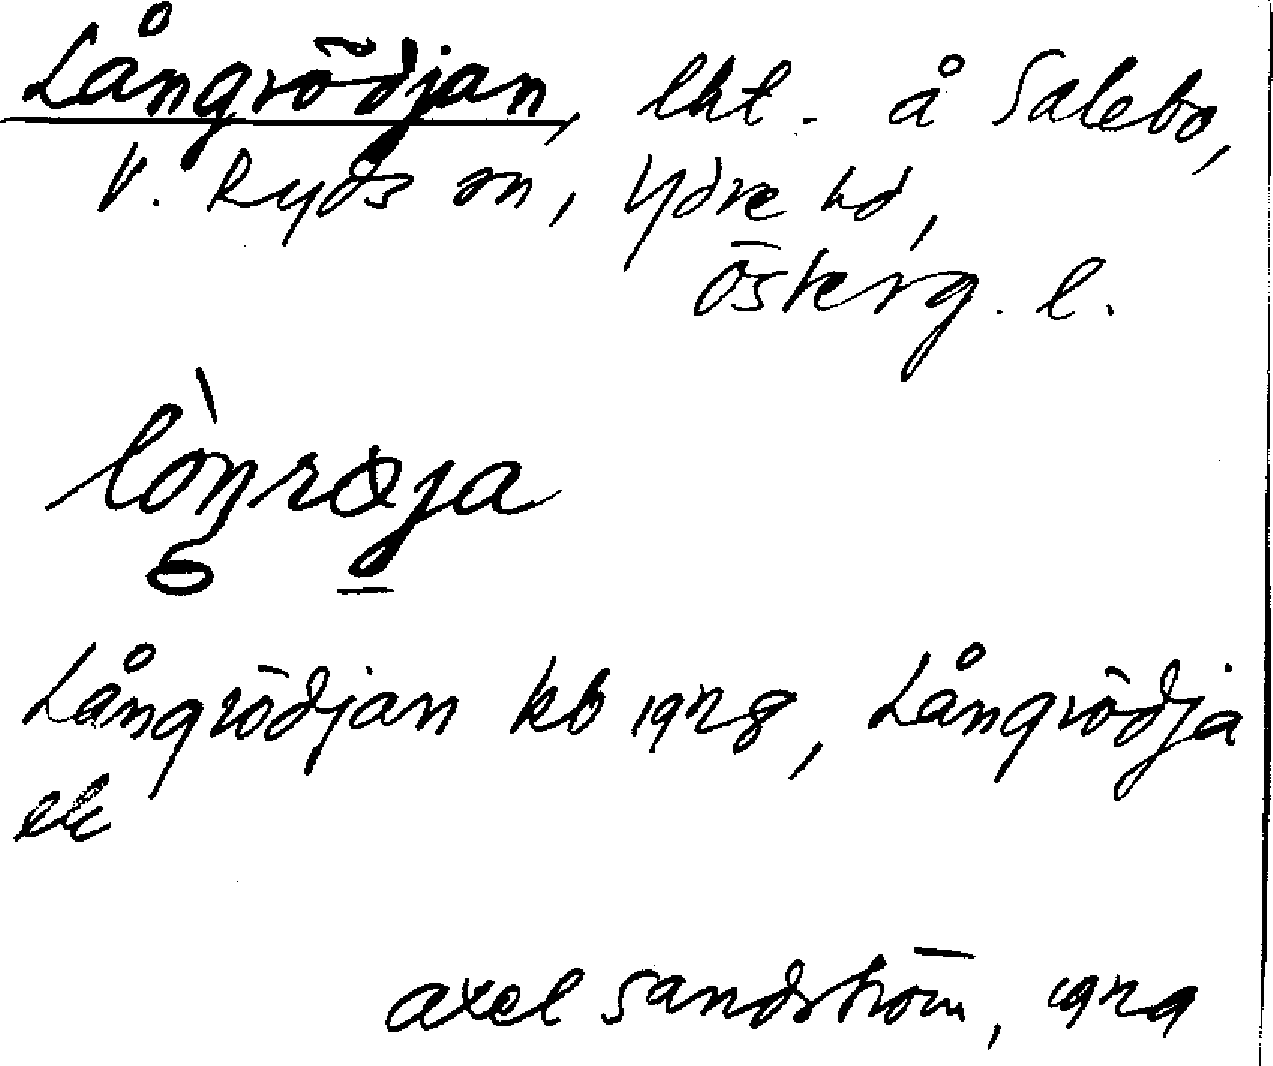 Långrödjan, lht. å Salebo,
V. Ryds sn, Ydre hd,
Österg. l.
lòŋrøja
Långrödjan kb 1928, Långrödja
ek
Axel Sandström, 1929